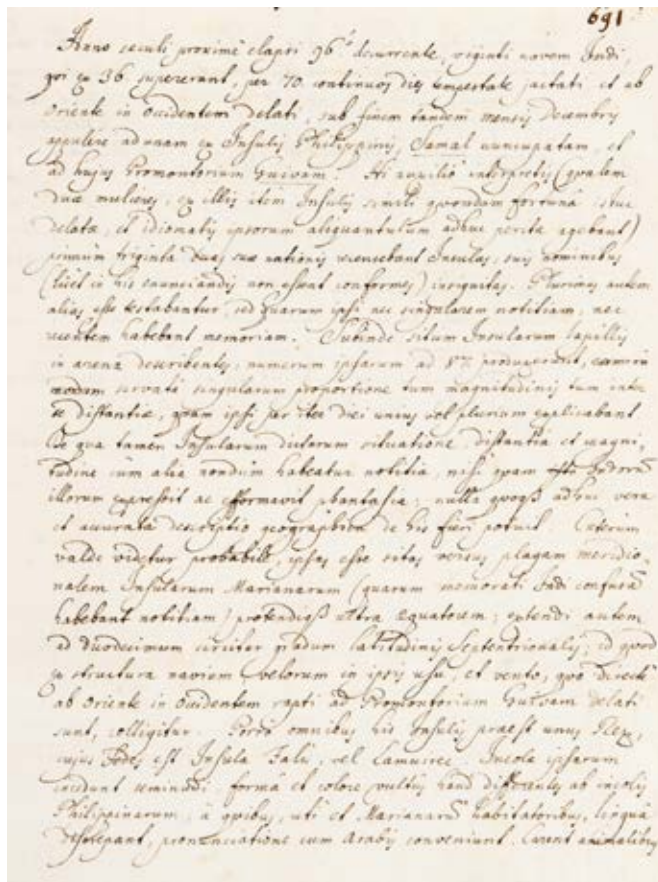 691
Anno seculi proximè elapsi 96to decurrente, viginti novem Indi,
qvi ex 36 supererant, per 70 continuos dies tempestate jactati et ab
Oriente in Occidentem delati, sub finem tandem mensis Decembris
appulere ad unam ex Insulis Philippinis, Samal nuncupatam, et
ad hujus Promontorium Guivam. Hi auxilio interpretis (qvalem
duæ mulieres, ex illis item Insulis simili qvondam fortunâ istuc
delatæ, et idiomatis ipsorum aliqvantulum adhuc peritæ agebant)
primum triginta duas suæ nationis recensebant Insulas, suis nominibus
(licet in his enunciandis non essent conformes) insignitas. Plurimas autem
alias esse testabantur, sed qvarum ipsi nec singularem notitiam, nec
recentem habebant memoriam. Subinde situm Insularum lapillis
in arena describentes, numerum ipsarum ad 87 produxerunt,
servatâ singularum proportione tum magnitudinis tum inter
se distantiæ, qvam ipsi per iter diei unius vel plurium explicabant
De qva tamen Insularum dictarum situatione, distantia et magni,
tudine cum alia nondum habeatur notitia, nisi qvam Indorū
illorum expressit ac efformavit phantasia; nulla qvoqɜ adhuc vera
et accurata descriptio geographica de his fieri potuit. Cæterum
valde videtur probabile, ipsas esse sitas versus plagam meridio,
nalem Insularum Marianarum (quarum memorati Indi confusā
habebant notitiam) protendiqɜ ultra æquatorem; extendi autem
ad duodecimum circiter gradum latitudinis Septentrionalis; id qvod
ex structura navium velorum in ipsis usu, et vento, qvo directè
ab Oriente in Occidentem rapti ad Promontorium Guivam delati
sunt, colligitur. Porrò omnibus his Insulis præest unus Rex,
cujus sedes est Insula Falu, vel Lamurrec. Incolæ ipsarum
incedunt seminudi formâ et colore vultûs haud differentes ab incolis
Philippinarum; à qvibus, uti et Marianarū habitatoribus, linguâ
discrepant, pronunciatione cum Arabis conveniunt. Carent animalibus